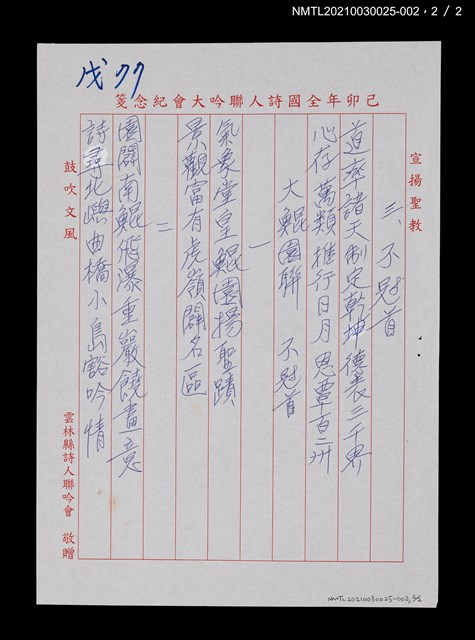 NMTL20210030025-002，2 / 2
戊77
己卯年全國詩人聯吟大會紀念箋
宣揚聖教
三、不冠首
道率諸天制定乾坤德表三千界
心存萬類推行日月恩覃百二州
大鯤園聯　不冠首
一
氣象堂皇鯤園揚聖蹟
景觀富有虎嶺闢名區
二
園闢南鯤飛瀑重巖饒畫意
詩尋北嶼曲橋小島豁吟情
鼓吹文風
雲林縣詩人聯吟會　敬贈
NMTL20210030025-002, 2/2